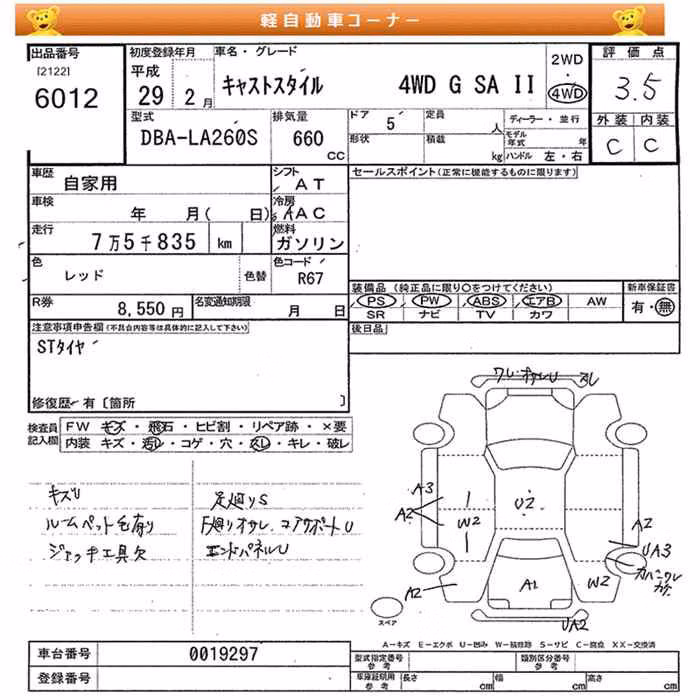 軽自動車コーナー
出品番号
[2122]
6012
初度登録年月
平成
29 2月
車名・グレード
キャストスタイル 4WD G SA II
2WD
・
4WD
評価点
3.5
外装 内装
C C
型式
DBA-LA260S
排気量
660
CC
ドア 5
形状
定員 人
積載 kg
ディーラー・並行
モデル年式 年
ハンドル 左・右
車歴
自家用
シフト
AT
車検
年 月( 日)
冷房
AAC
走行
7万5千835 km
燃料
ガソリン
色
レッド
色替
色コード
R67
R券
8,550円
名変通知期限
月 日
セールスポイント(正常に機能するものに限ります)
装備品(純正品に限り○をつけてください)
PS PW ABS エアB AW
SR ナビ TV カワ
新車保証書
有・無
後日品
注意事項申告欄(不具合内容等は具体的に記入して下さい)
STタイヤ
修復歴 有〔箇所 〕
検査員記入欄
FW キズ・飛石・ヒビ割・リペア跡・×要
内装 キズ・汚レ・コゲ・穴・スレ・キレ・破レ
キズU
ルームペット毛有り
ジャッキ工具欠
足廻りS
下廻りオサレ コアサポートU
エンドパネルU
ワレ・オサレU スレ
A3
A2
W2
U2
A2
UA3
A2
A1
W2
UA2
スペア
A=キズ E=エクボ U=凹み W=補修跡 S=サビ C=腐点 XX=交換済
車台番号
0019297
登録番号
型式指定番号
参考
類別区分番号
参考
車庫証明用
参考
長さ cm
幅 cm
高さ cm